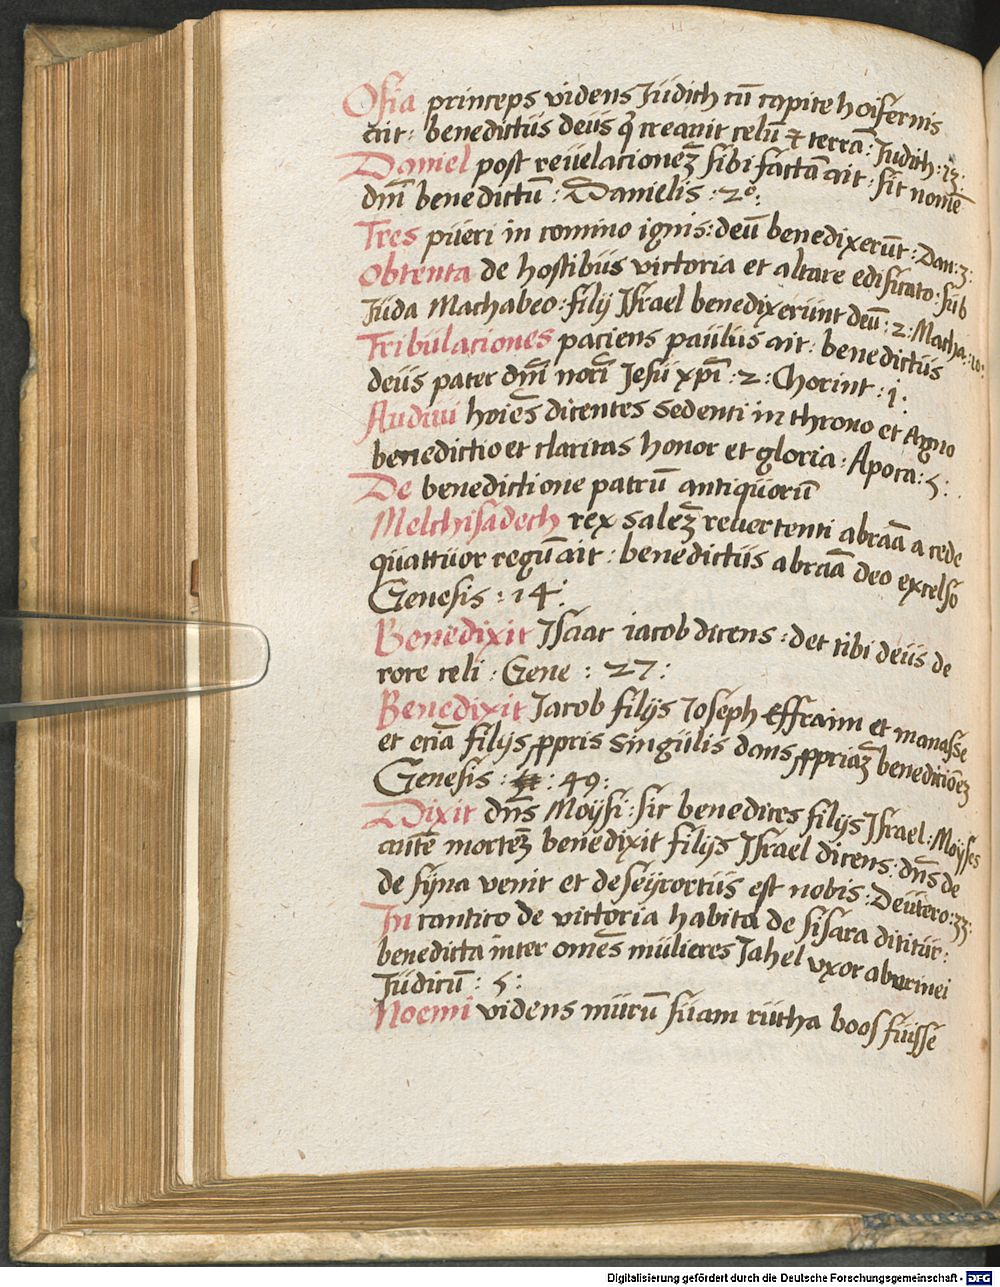 Osia princeps videns Jüdich cū capite hoifernis
ait: benedictüs deüs q̇ creavit celū et terrā: Judith: 13:
Daniel post revelacionēʒ sibi factā ait: sit nomē
dn̄i benedictū: Danielis: 2°:
Tres püeri in comino ignis: deū benedixerūt: Dan: 3:
Obtenta de hostibüs victoria et altare edificato: süb
Jüda Machabeo: filij Jsrael benedixerünt deū: 2: Macha: 10:
Tribülaciones paciens paülüs ait: benedictüs
deüs pater dn̄i nor̄i Jesü xp̄i: 2: Chorint: i:
Audivi hoiēs dicentes sedenti in throno et Agno
benedictio et claritas honor et gloria: Apoca: 5:
De benedictione patrū antiqüorū
Melchisadech rex saleʒ revertenti abraā a cede
qüattüor regū ait: benedictüs abraā deo excelso
Genesis: 14:
Benedixit Jsaac iacob dicens: det tibi deüs de
rore celi: Gene: 27:
Benedixit Jacob filijs Joseph Effraim et manasse
et eciā filijs ꝓpris singülis dans ꝓpriāʒ benedictiōeʒ
Genesis: 49:
Dixit dn̄s Moÿsi: sic benedices filijs Jsrael: Moÿses
antē mortēʒ benedixit filijs Jsrael dicens: dn̄s de
de sÿna venit et de seÿr ortüs est nobis: Deütero: 33:
In cantico de victoria habita de sisara dititür:
benedicta inter omēs mülieres Jahel vxor abercinei
Jüdicū: 5:
Noemi videns nürū süam rütha boos füisse
Digitalisierung gefördert durch die Deutsche Forschungsgemeinschaft - DFG